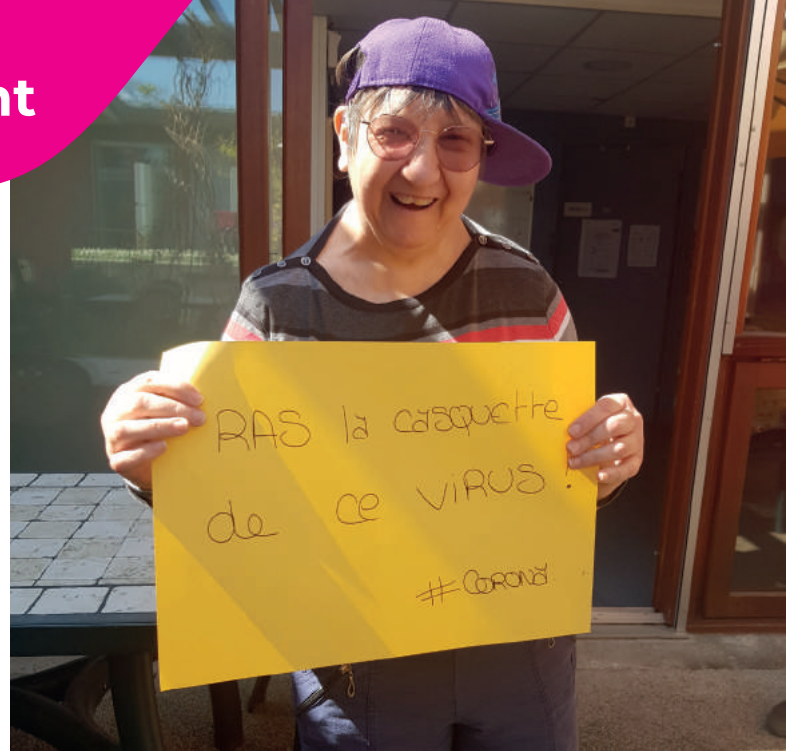 nt
RAS la casquette
de ce VIRUS!
#CORONA